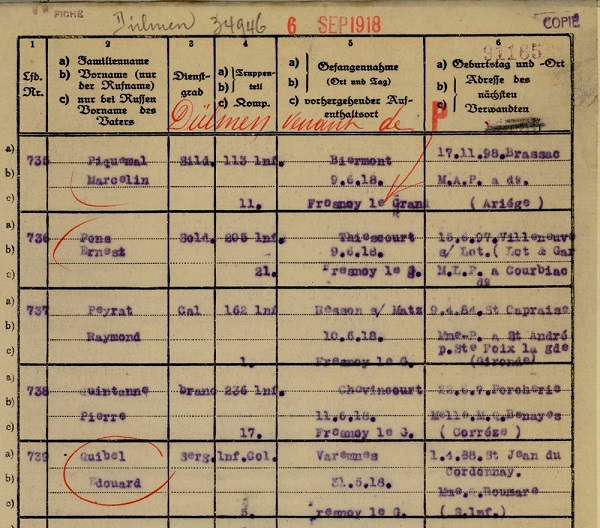 FICHE Dülmen 34946 6 SEP 1918 COPIE
91165
1 2 3 4 5 6
Lfd. Nr.
a) Familienname
b) Vorname (nur der Rufname)
c) nur bei Russen Vorname des Vaters
Dienstgrad
a) Truppen-
b) teil
c) Komp.
a) Gefangennahme
b) (Ort und Tag)
c) vorhergehender Aufenthaltsort
a) Geburtstag und -Ort
b) Adresse des
c) nächsten Verwandten
Dülmen venant de P
a) 735 Piquemal Sold. 113 Inf. Biermont 17.11.98.Brassac
b) Marcelin 9.6.18. M.A.P. a ds.
c) 11. Fresnoy le Grand (Ariége)
a) 736 Pons Sold. 205 Inf. Thiescourt 15.6.97.Villeneuve
b) Ernest 9.6.18. s/ Lot.( Lot & Gar
c) 21. Fresnoy le G. M.L.P. a Courbiac
ds
a) 737 Peyrat Cal 162 Inf Resson s/ Matz 9.4.84.St Capraise
b) Raymond 10.6.18. Mme.P. a St André
p.Ste Foix la gde
c) 1. Fresnoy le G. (Gironde)
a) 738 Quintanne branc 236 Inf. Chevincourt Porcherie
b) Pierre 11.6.18. Melle.M.Q.Benayes
c) 17. Fresnoy le G. ( Corréze )
a) 739 Quibel Serg. Inf.Col. Varennes 1.4.88.St Jean du
Cordonnay.
b) Edouard 31.5.18. Mme.Q.Roumare
c) Fresnoy le G. ( S.Inf.)